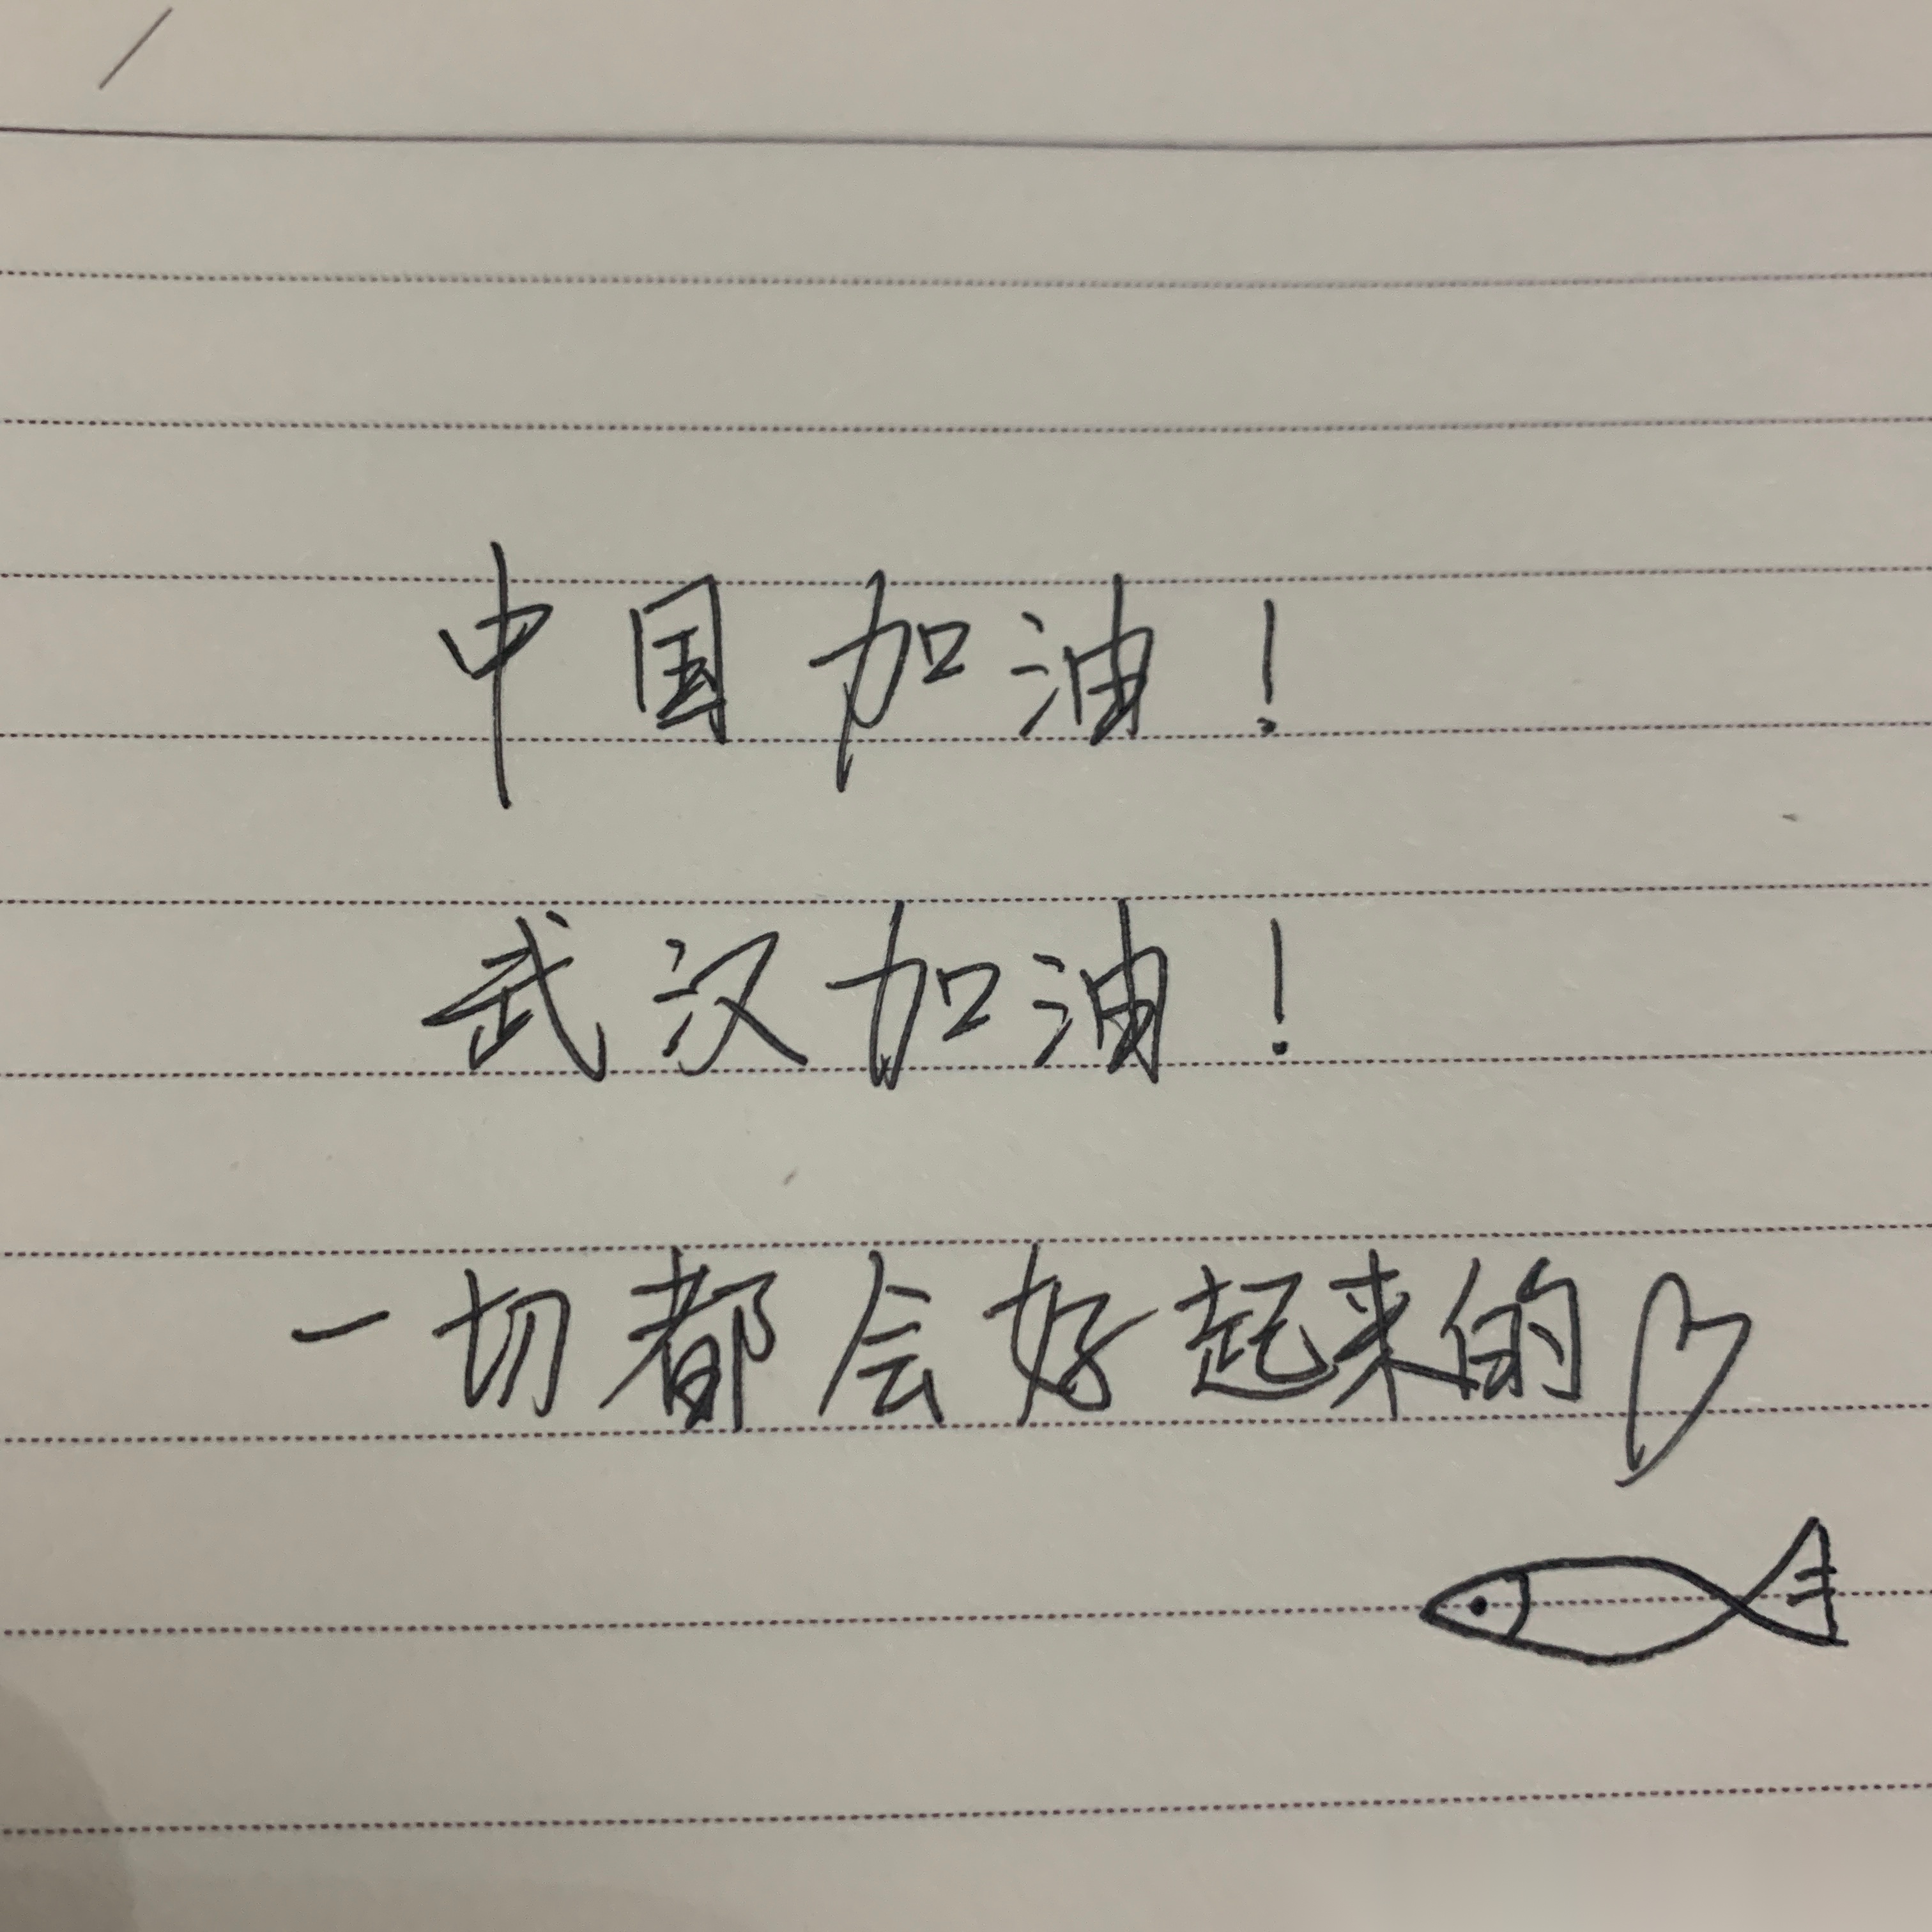 中国加油!
武汉加油!
一切都会好起来的